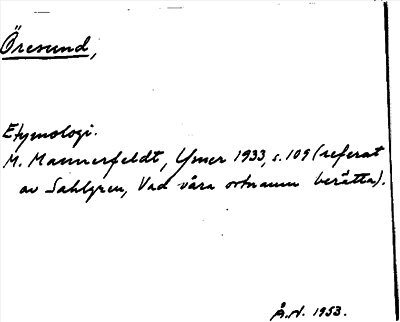 Öresund,
Etymologi.
M. Mannerfeldt, Ymer 1933, s. 109 (referat
av Sahlgren, Vad våra ortnamn berätta).
Å.N. 1953.